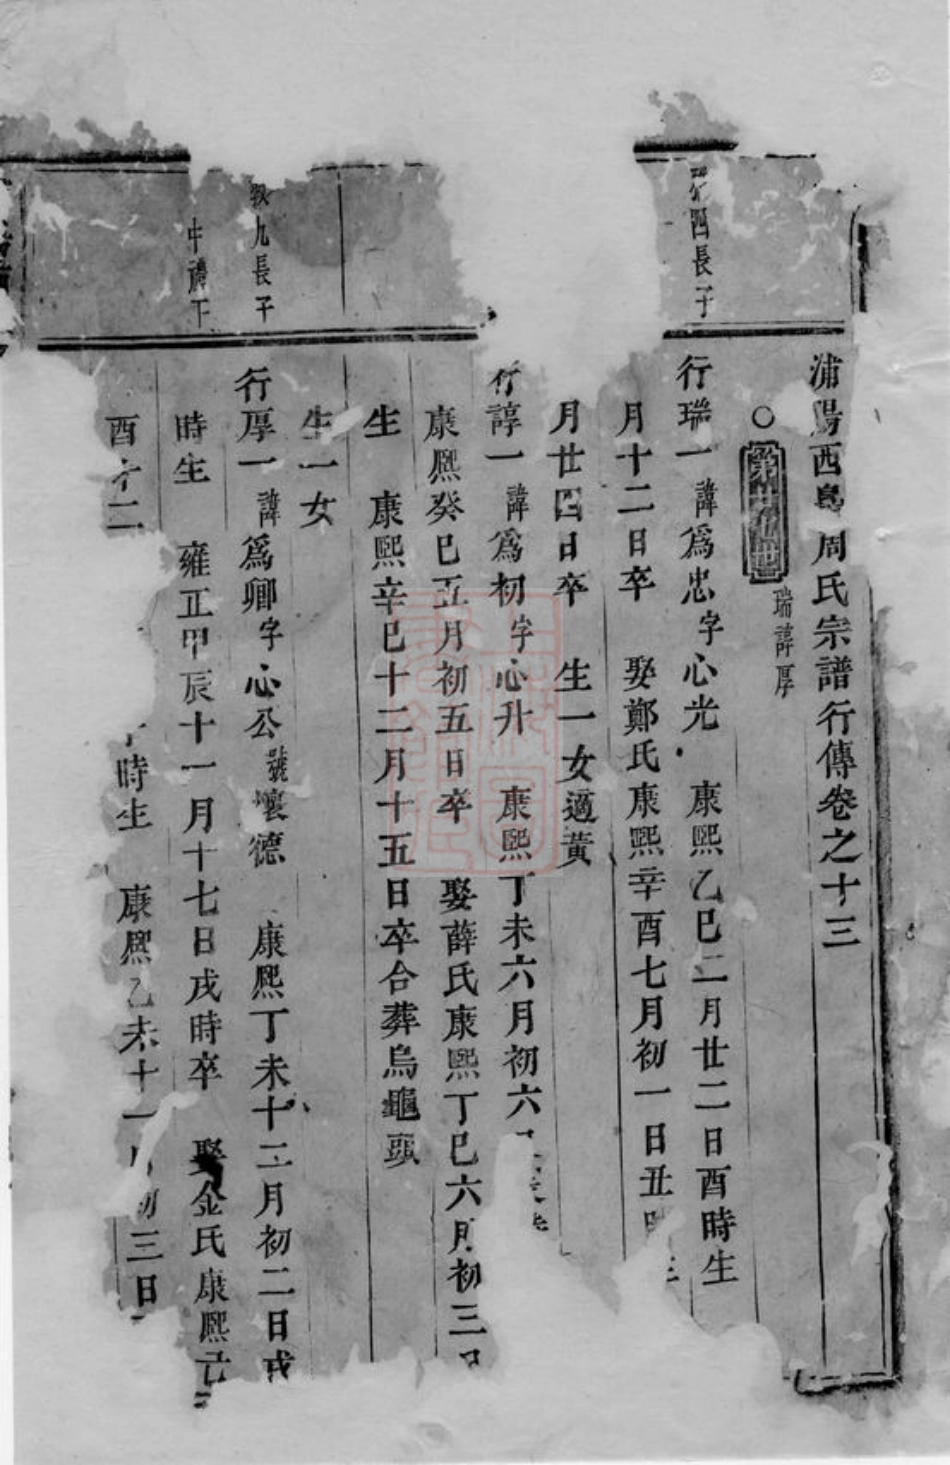 浦陽西皐周氏宗譜行傳卷之十三
瑞諄厚
四長子
行瑞一諱為忠字心光 康熙乙巳二月廿二日酉時生
月十二日卒 娶鄭氏康熙辛酉七月初一日丑
月廿四日卒 生一女適黃
行諄一諱為初字心升 康熙丁未六月初六
康熙癸巳五月初五日卒 娶薛氏康熙丁巳六月初三日
生 康熙辛巳十二月十五日卒合葬烏龜頭
生一女
九長子
行厚一諱為卿字心公號懷德 康熙丁未十二月初二日戌
時生 雍正甲辰十一月十七日戌時卒 娶金氏康熙己
酉十二
時生 康熙乙未十一月初三日